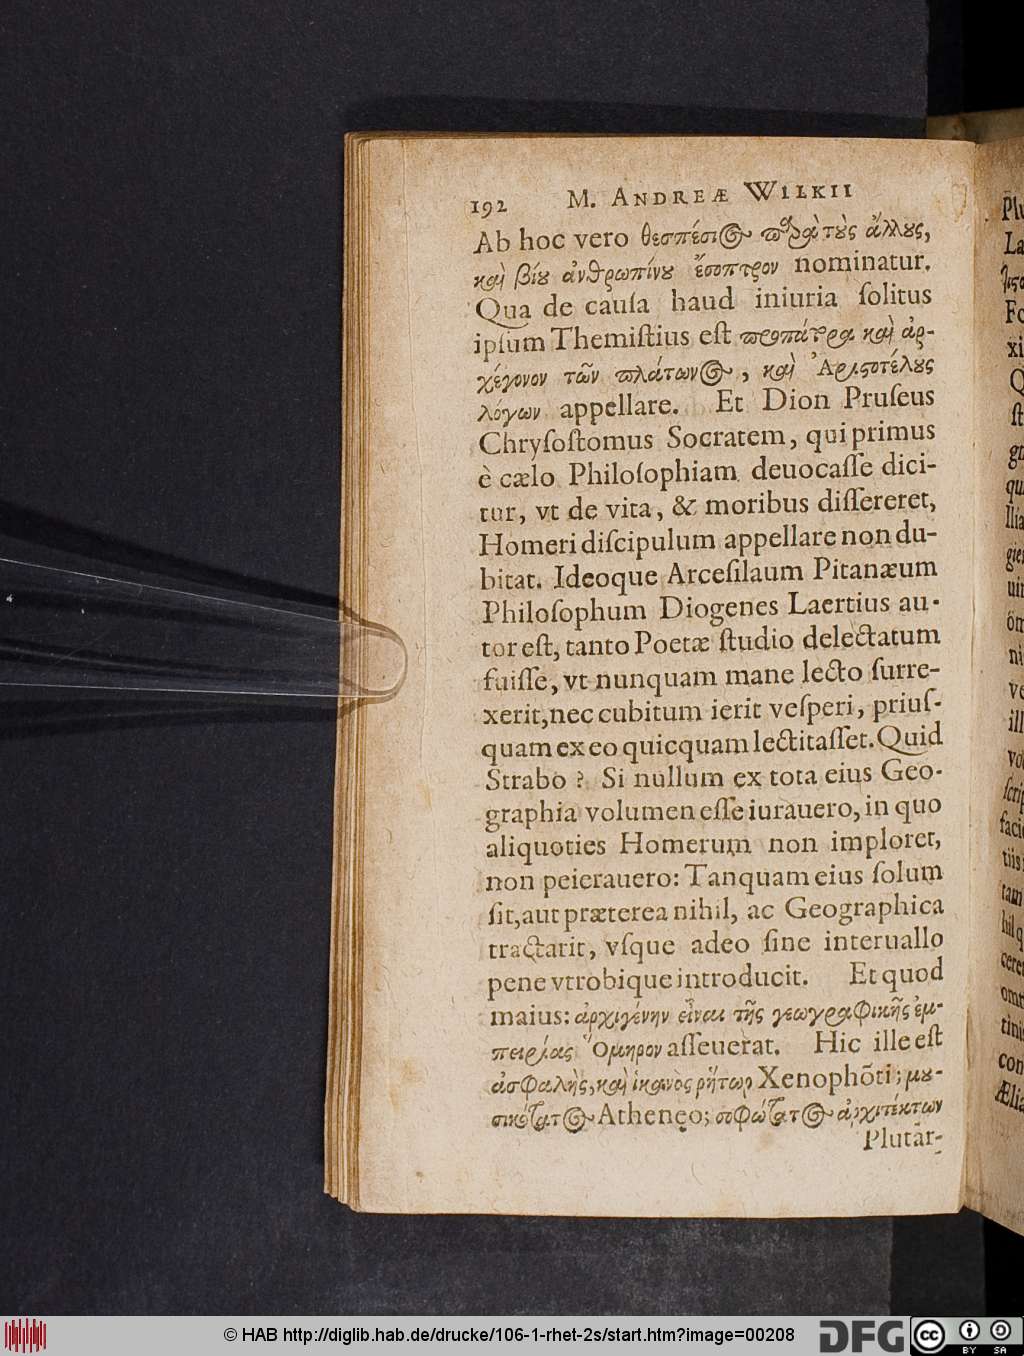 192 M. ANDREÆ WILKII
Ab hoc vero θεσπέσι⸺ παρὰ τοὺς ἄλλους,
καὶ βίου ἀνθρωπίνου ἔσοπτρον nominatur.
Qua de cauſa haud iniuria ſolitus
ipſum Themiſtius eſt προπάτορα καὶ ἀρ-
χέγονον τῶν πλάτωνος, καὶ Ἀριστοτέλους
λόγων appellare. Et Dion Pruſeus
Chryſoſtomus Socratem, qui primus
è cælo Philoſophiam deuocaſſe dici-
tur, vt de vita, & moribus diſſereret,
Homeri diſcipulum appellare non du-
bitat. Ideoque Arceſilaum Pitanæum
Philoſophum Diogenes Laertius au-
tor eſt, tanto Poetæ ſtudio delectatum
fuiſſe, vt nunquam mane lecto ſurre-
xerit, nec cubitum ierit veſperi, priuſ-
quam ex eo quicquam lectitaſſet. Quid
Strabo? Si nullum ex tota eius Geo-
graphia volumen eſſe iurauero, in quo
aliquoties Homerum non imploret,
non peierauero: Tanquam eius ſolum
ſit, aut præterea nihil, ac Geographica
tractarit, vſque adeo ſine interuallo
pene vtrobique introducit. Et quod
maius: ἀρχιγένην εἶναι τῆς γεωγραφικῆς ἐμ-
πειρίας Ὅμηρον aſſeuerat. Hic ille eſt
ἀσφαλὴς, καὶ ἱκανὸς ῥήτωρ Xenophōti; μου-
σικώτατος Athenęo; σοφώτατος ἀρχιτέκτων
Plutar-
Plu
La
Fo
xi
Q
ſt
© HAB http://diglib.hab.de/drucke/106-1-rhet-2s/start.htm?image=00208
DFG
cc BY SA